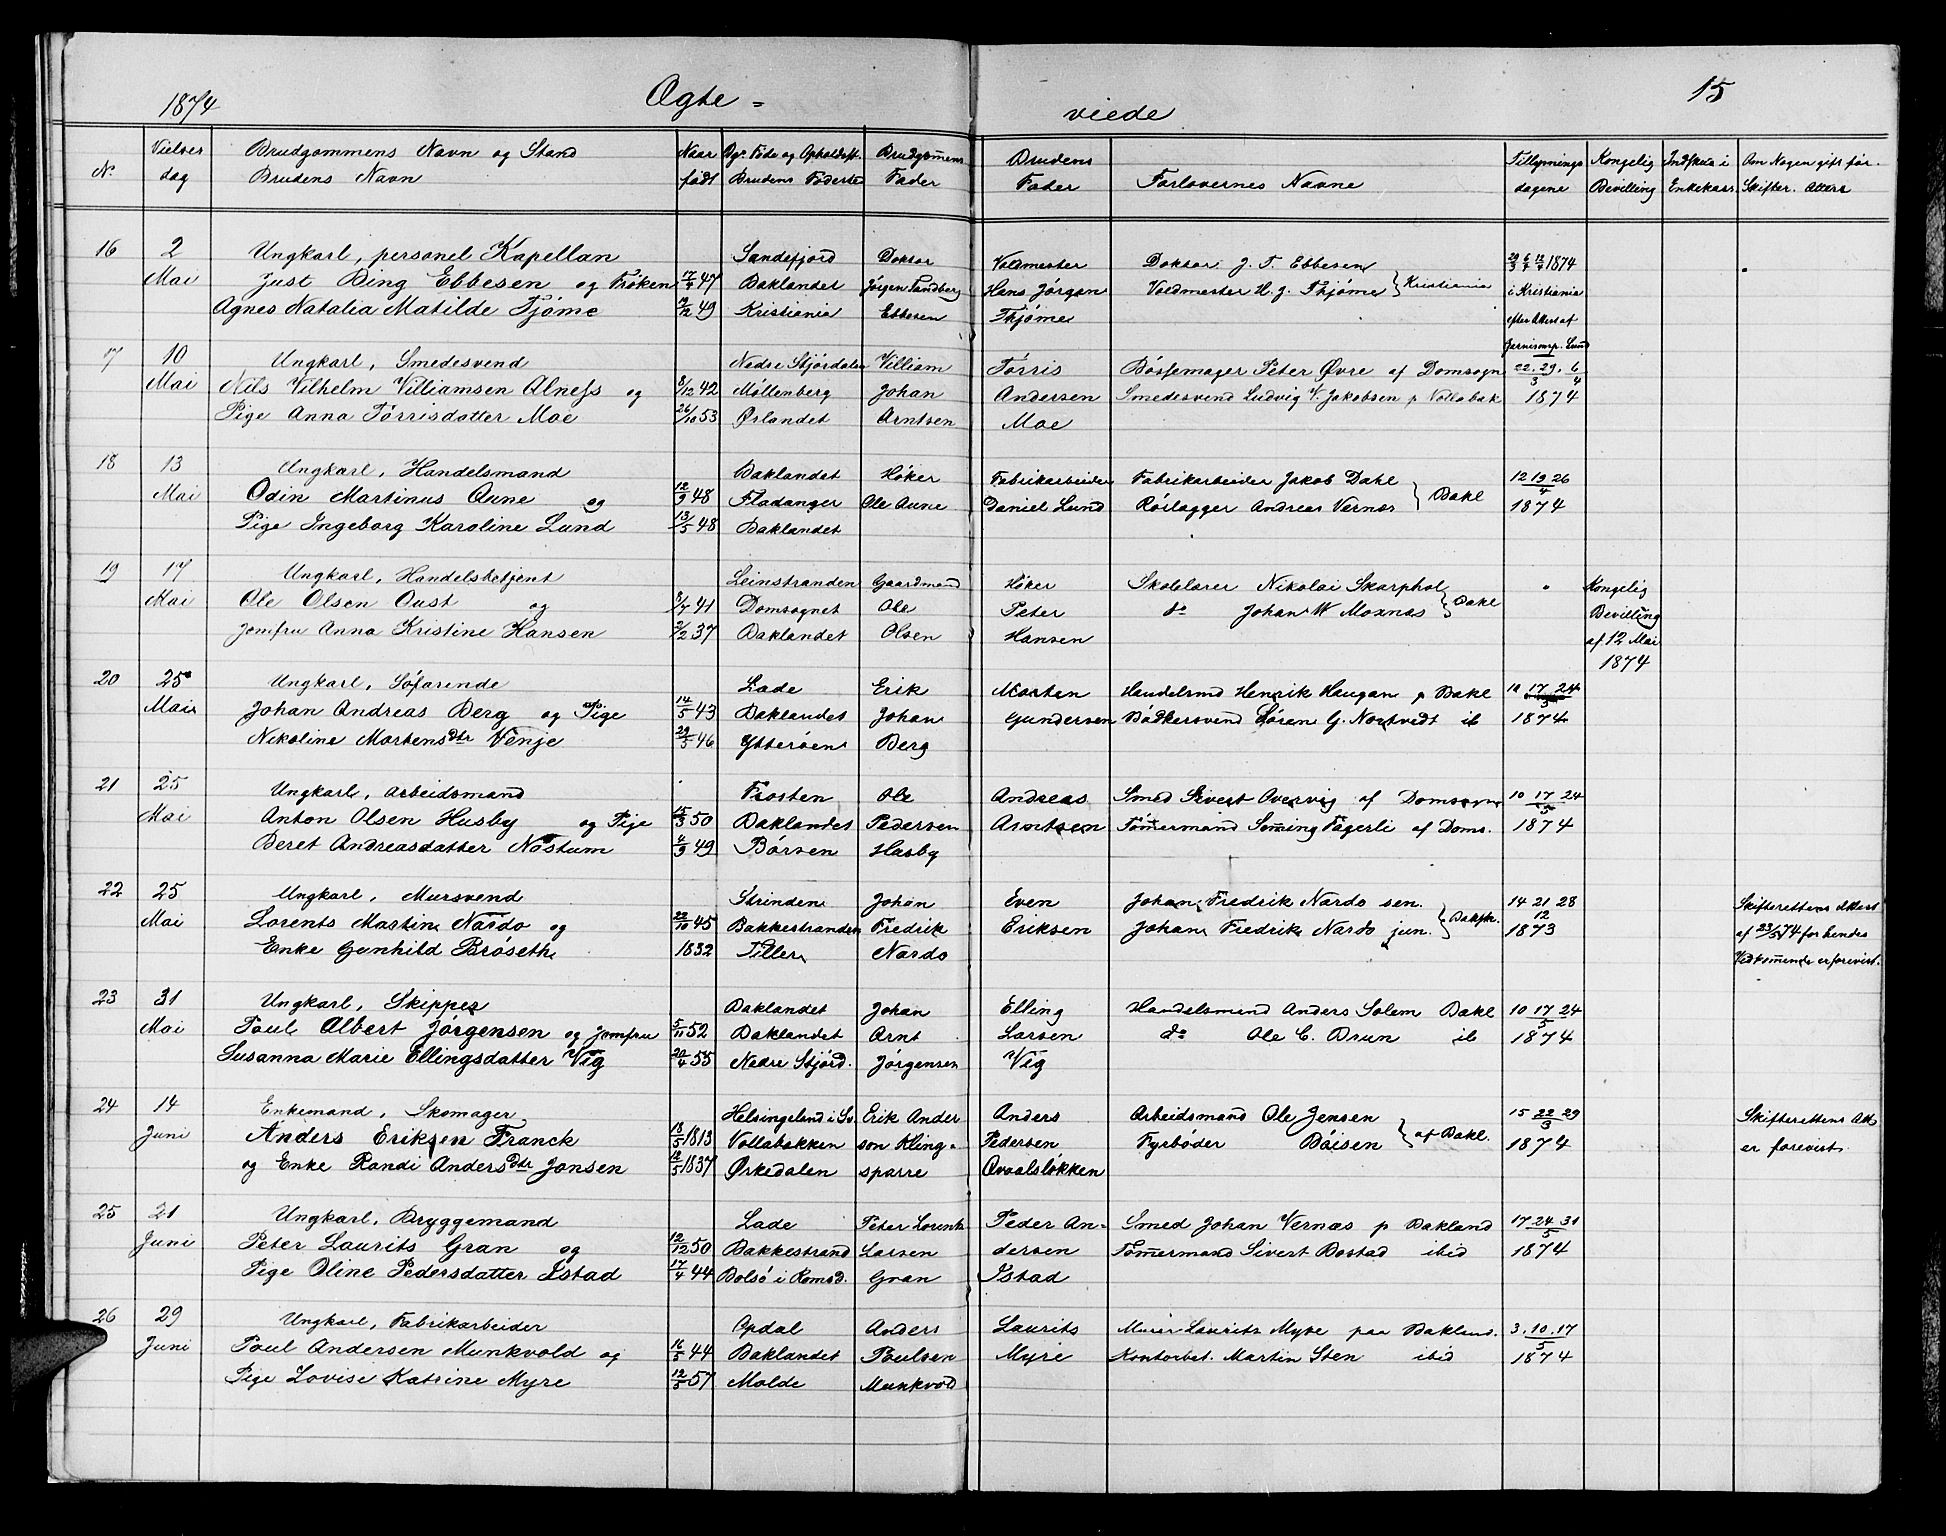 1874 Ægte = viede 15
No Vielses dag Brudgommens Navn og Stand Brudens Navn Naar født Bgs Føde og Opholdsst. Brudens Fødested Brudgomens Fader Brudens Fader Forlovernes Navne Tillysnings dagene Kongelig Bevilling Indskud i Enkekass. Om Nogen gift før. Skifter. Attest
16 2 Ungkarl, personel Kapellan Sandefjord Doktor Voldmester Doktor J. T. Ebbesen 29/3 6/4 12/4 1874
Mai Just Bing Ebbesen og Frøken 17/4 47 Baklandet Jørgen Sandberg Hans Jørgen Voldmester H. J. Thjøme } Kristiania i Kristiania
Agnes Natalia Matilde Tjøme 19/2 49 Kristiania Ebbesen Thjøme efter Attest af
17 10 Ungkarl, Smedesvend Nedre Stjørdalen Villiam Tørris Bøssemager Peter Øvre af Domsogn 22. 29. 6
Mai Nils Vilhelm Villiamsen Alness og 8/12 42 Møllenberg Johan Andersen Smedesvend Ludvig V. Jakobsen p Vollabak 3 4 1874
Pige Anna Tørrisdatter Moe 26/10 53 Ørlandet Arntsen Moe
18 13 Ungkarl, Handelsmand Baklandet Høker Fabrikarbeider Fabrikarbeider Jakob Dahl 12 19 26
Mai Odin Martinus Aune og 12/9 48 Fladanger Ole Aune Daniel Lund Røilægger Andreas Vernes } Bakl 4 1874
Pige Ingeborg Karoline Lund 13/5 48 Baklandet
19 17 Ungkarl, Handelsbetjent Leinstranden Gaardmand Høker Skolelærer Nikolai Skarphol " Kongelig
Mai Ole Olsen Oust og 8/7 41 Domsognet Ole Peter do Johan W Moxnes } Bakl Bevilling
Jomfru Anna Kristine Hansen 2/2 37 Baklandet Olsen Hansen af 12 Mai
1874
20 25 Ungkarl, Søfarende Lade Erik Morten Handelsmd Henrik Haugan p Bakl 10 17 24
Mai Johan Andreas Berg og Pige 14/5 43 Baklandet Johan Gundersen Bødkersvend Søren G. Nortvedt ib 5 1874
Nikoline Mortensdtr Venje 29/5 46 Ytterøen Berg
21 25 Ungkarl, Arbeidsmand Frosten Ole Andreas Smed Sivert Overvig af Domsogn 10 17 24
Mai Anton Olsen Husby og Pige 15/3 50 Baklandet Pedersen Arntsen Tømermand Søming Fagerli af Doms. 5 1874
Beret Andreasdatter Nostum 4/9 49 Børsen Husby
22 25 Ungkarl, Mursvend Strinden Johan Even Johan Fredrik Nardo sen. 14 21 28 Skifterettens Attest
Mai Lorents Martin Nardo og 22/10 45 Bakkestranden Fredrik Eriksen Johan Fredrik Nardo jun. } Bakfk. 12 1873 af 23/5 74 for hendes
Enke Gunhild Brøseth 1832 Tiller Nardo Vedkomende er forevist.
23 31 Ungkarl, Skipper Baklandet Johan Elling Handelsmand Anders Solem Bakl 10 17 24
Mai Poul Albert Jørgensen og Jomfru 5/11 52 Baklandet Arnt Larsen do Ole C. Brun ib 5 1874
Susanna Marie Ellingsdatter Vig 20/4 55 Nedre Stjørd. Jørgensen Vig
24 14 Enkemand, Skomager Helsingeland i Sv. Erik Ander Anders Arbeidsmand Ole Jensen 15 22 29 Skifterettens Att.
Juni Anders Eriksen Franck 18/5 1813 Vollabakken son Kling- Pedersen Fyrbøder Boisen } af Bakl. 3 1874 er forevist.
og Enke Randi Andersdtr Jonsen 12/5 1837 Ørkedalen sparre Qvaalsløkken
25 21 Ungkarl, Bryggemand Lade Peter Lorents Peder An- Smed Johan Vernæs p Bakland 17 24 31
Juni Peter Laurits Gran og 12/12 50 Bakkestrand Larsen dersen Tømermand Sivert Bostad ibid 5 1874
Pige Oline Pedersdatter Istad 17/4 44 Bolsø i Romsd. Gran Istad
26 29 Ungkarl, Fabrikarbeider Opdal Anders Laurits Murer Laurits Myre paa Bakland. 3. 10. 17
Juni Poul Andersen Munkvold og 16/3 44 Baklandet Poulsen Myre Kontorbet. Martin Sten ibid 5 1874
Pige Lovise Katrine Myre 12/5 57 Molde Munkvold